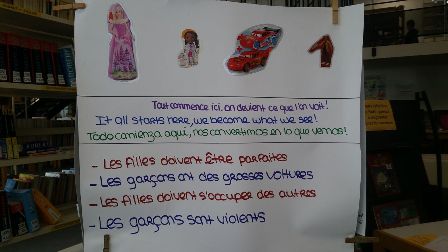 Tout commence ici, on devient ce que l'on voit!
It all starts here, we become what we see!
Todo comienza aquí, nos convertimos en lo que vemos!
- Les filles doivent être parfaites
- Les garçons ont des grosses voitures
- Les filles doivent s'occuper des autres
- Les garçons sont violents